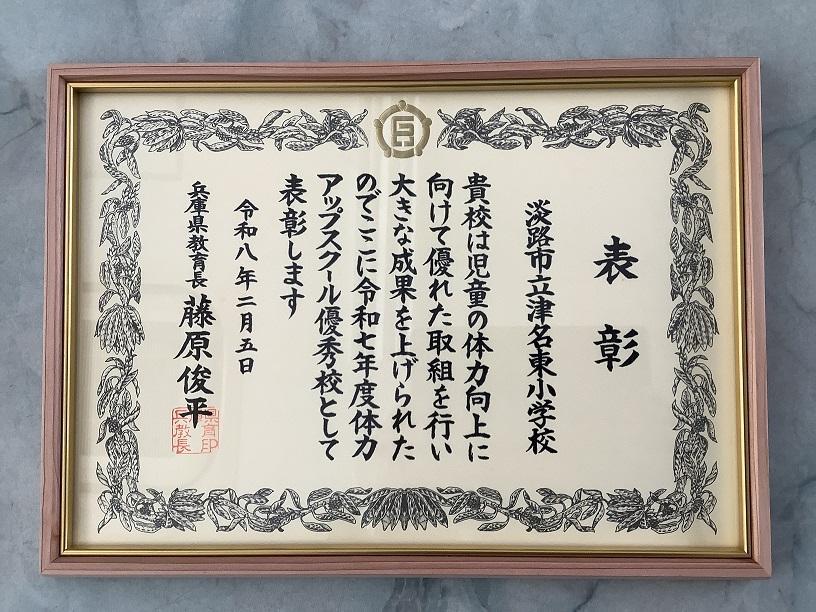 表彰
淡路市立津名東小学校
貴校は児童の体力向上に
向けて優れた取組を行い
大きな成果を上げられた
のでここに令和七年度体力
アップスクール優秀校として
表彰します
令和八年二月五日
兵庫県教育長 藤原俊平